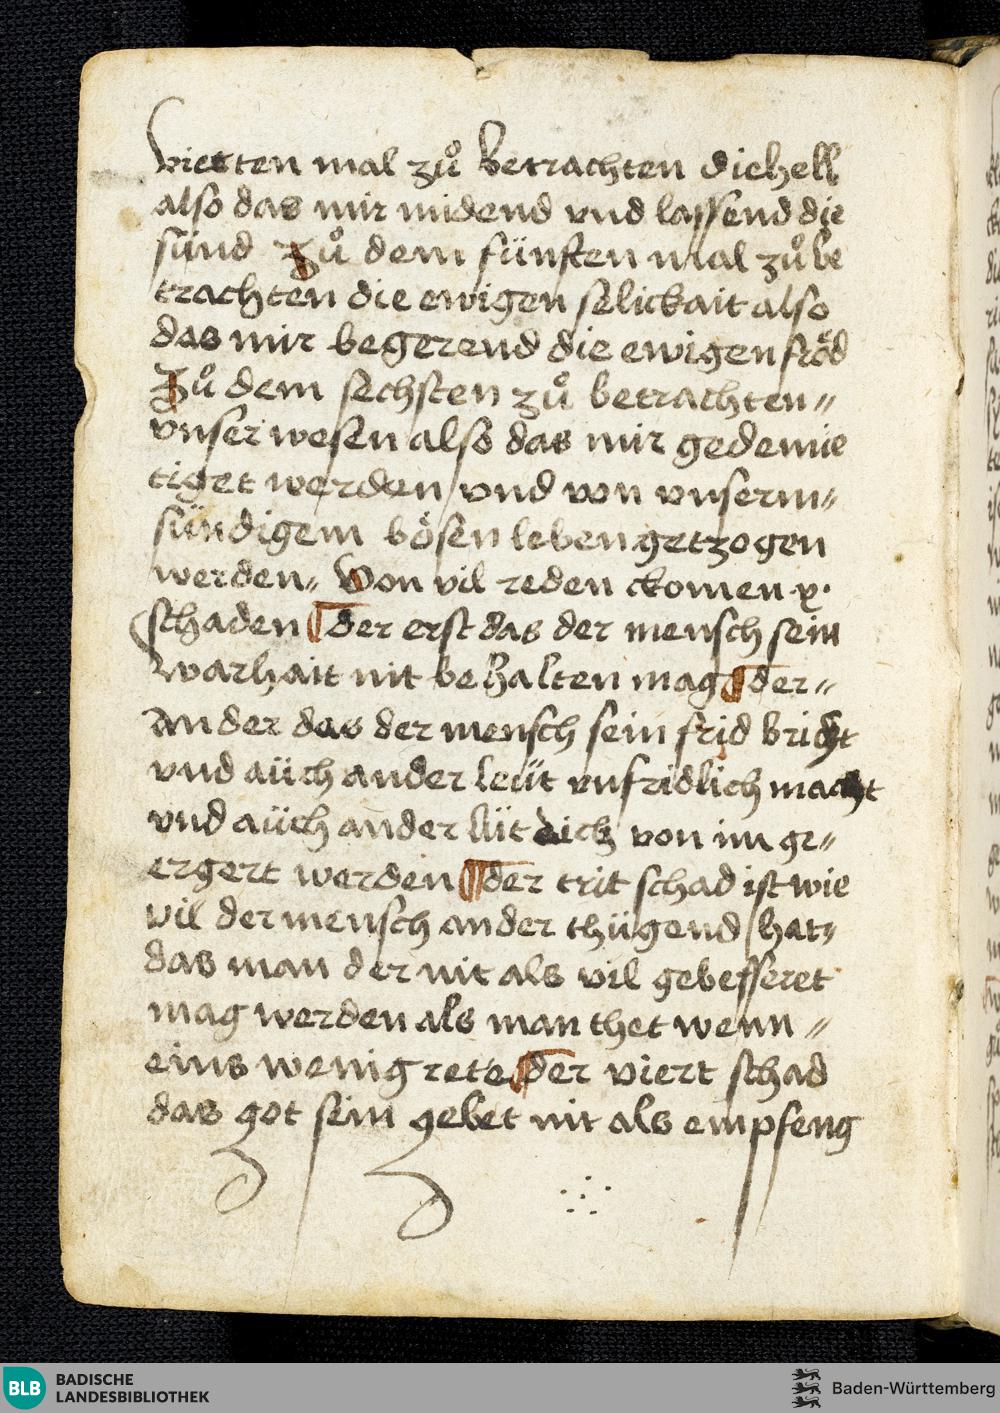 vierten mal zů betrachten die hell
also das mir midend vnd lassend die
sünd Zů dem fünften mal zů be
trachten die ewigen selickait also
das mir begerend die ewigen fröd
Zů dem sechsten zů betrachten〃
vnser wesen also das mir gedemie
tiget werden vnd von vnserm〃
sündigem bösen leben getzogen
werden〃 Von vil reden ckomen x·
schaden der erst das der mensch sein
warhait nit behalten mag der〃
ander das der mensch sein frid bricht
vnd aüch ander leüt vnfridlich macht
vnd aüch ander lüt dick von im ge〃
ergert werden der trit schad ist wie
vil der mensch ander thügend hat〃
das man der nit als vil gebesseret
mag werden als man thet wenn〃
eins wenig rete der viert schad
das got sein gebet nit als empfeng
BLB BADISCHE
LANDESBIBLIOTHEK
Baden-Württemberg